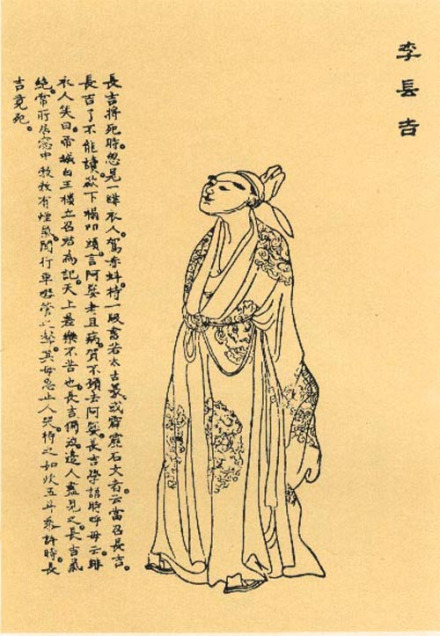 李長吉
長吉將死時。忽見一緋衣人。駕赤虯持一版書若太古篆或霹靂石文者。云當召長吉。
長吉了不能讀。欻下榻叩頭。言阿㜷老且病。賀不願去。阿㜷。長吉學語時呼母云。緋
衣人笑曰。帝城白玉樓立召君為記。天上差樂不苦也。長吉獨泣。邊人盡見之。長吉氣
絕。常所居窗中勃勃有煙氣。聞行車嘒管之聲。其母急止人哭。待之如炊五斗黍許時。長
吉竟死。